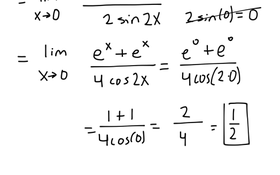 lim x→0 2 sin 2x 2sin(0) = 0
= lim x→0 (e^x + e^x)/(4 cos 2x) = (e^0 + e^0)/(4cos(2·0))
= (1 + 1)/(4cos(0)) = 2/4 = 1/2